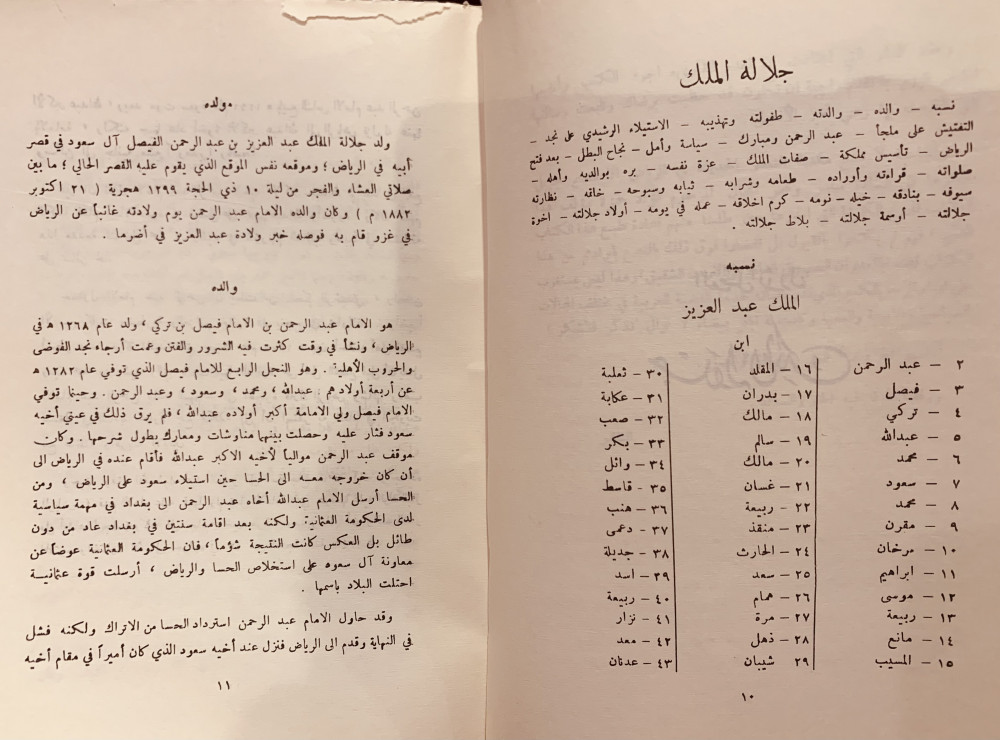 جلالة الملك
نسبه – والده – والدته – طفولته وتهذيبه – الاستيلاء الرشيدي على نجد –
التفتيش على ملجأ – عبد الرحمن ومبارك – سياسة وأمل – نجاح البطل – بعد فتح
الرياض – تأسيس مملكة – صفات الملك – عزة نفسه – بره بوالديه وأهله –
صلواته – قراءته وأوراده – طعامه وشرابه – ثيابه وسبوحه – خاقه – نظارته
سيوفه – بنادقه – خيله – نومه – كرم اخلاقه – عمله في يومه – أولاد جلالته – اخوة
جلالته – أوسمة جلالته – بلاط جلالته .
نسبه
الملك عبد العزيز
ابن
٢ – عبد الرحمن
٣ – فيصل
٤ – تركي
٥ – عبدالله
٦ – محمد
٧ – سعود
٨ – محمد
٩ – مقرن
١٠ – مرخان
١١ – ابراهيم
١٢ – موسى
١٣ – ربيعة
١٤ – مانع
١٥ – المسيب
١٦ – المقلد
١٧ – بدران
١٨ – مالك
١٩ – سالم
٢٠ – مالك
٢١ – غسان
٢٢ – ربيعة
٢٣ – منقذ
٢٤ – الحارث
٢٥ – سعد
٢٦ – همام
٢٧ – مرة
٢٨ – ذهل
٢٩ شيبان
٣٠ – ثعلبة
٣١ – عكابة
٣٢ – صعب
٣٣ – بكر
٣٤ – وائل
٣٥ - قاسط
٣٦ – هنب
٣٧ – دعمى
٣٨ – جديلة
٣٩ – اسد
٤٠ – ربيعة
٤١ – نزار
٤٢ – معد
٤٣ – عدنان
١٠
مولده
ولد جلالة الملك عبد العزيز بن عبد الرحمن الفيصل آل سعود في قصر
أبيه في الرياض ؛ وموقعه نفس الموقع الذي يقوم عليه القصر الحالي ؛ ما بين
صلاتي العشاء والفجر من ليلة ١٠ ذي الحجة ١٢٩٩ هجرية ( ٢١ اكتوبر
١٨٨٢ م ) وكان والده الامام عبد الرحمن يوم ولادته غائباً عن الرياض
في غزو قام به فوصله خبر ولادة عبد العزيز في أضرما .
والده
هو الامام عبد الرحمن بن الامام فيصل بن تركي ، ولد عام ١٢٦٨ ه في
الرياض ، ونشأ في وقت كثرت فيه الشرور والفتن وعمت أرجاء نجد الفوضى
والحروب الأهلية . وهو النجل الرابع للامام فيصل الذي توفي عام ١٢٨٢ ه
عن أربعة أولاد هم : عبدالله ، ومحمد ، وسعود ، وعبد الرحمن . وحينما توفي
الامام فيصل ولي الامامة أكبر أولاده عبدالله ، فلم يرق ذلك في عيني أخيه
سعود فثار عليه وحصلت بينهما مناوشات ومعارك يطول شرحها . وكان
موقف عبد الرحمن موالياً لأخيه الاكبر عبدالله فأقام عنده في الرياض الى
أن كان خروجه معه الى الحسا حين استيلاء سعود على الرياض ، ومن
الحسا أرسل الامام عبدالله أخاه عبد الرحمن الى بغداد في مهمة سياسية
لدى الحكومة العثمانية ولكنه بعد اقامة سنتين في بغداد عاد من دون
طائل بل العكس كانت النتيجة شؤماً ، فان الحكومة العثمانية عوضاً عن
معاونة آل سعود على استخلاص الحسا والرياض ، أرسلت قوة عثمانية
احتلت البلاد باسمها .
وقد حاول الامام عبد الرحمن استرداد الحسا من الاتراك ولكنه فشل
في النهاية وقدم الى الرياض فنزل عند أخيه سعود الذي كان أميراً في مقام أخيه
١١